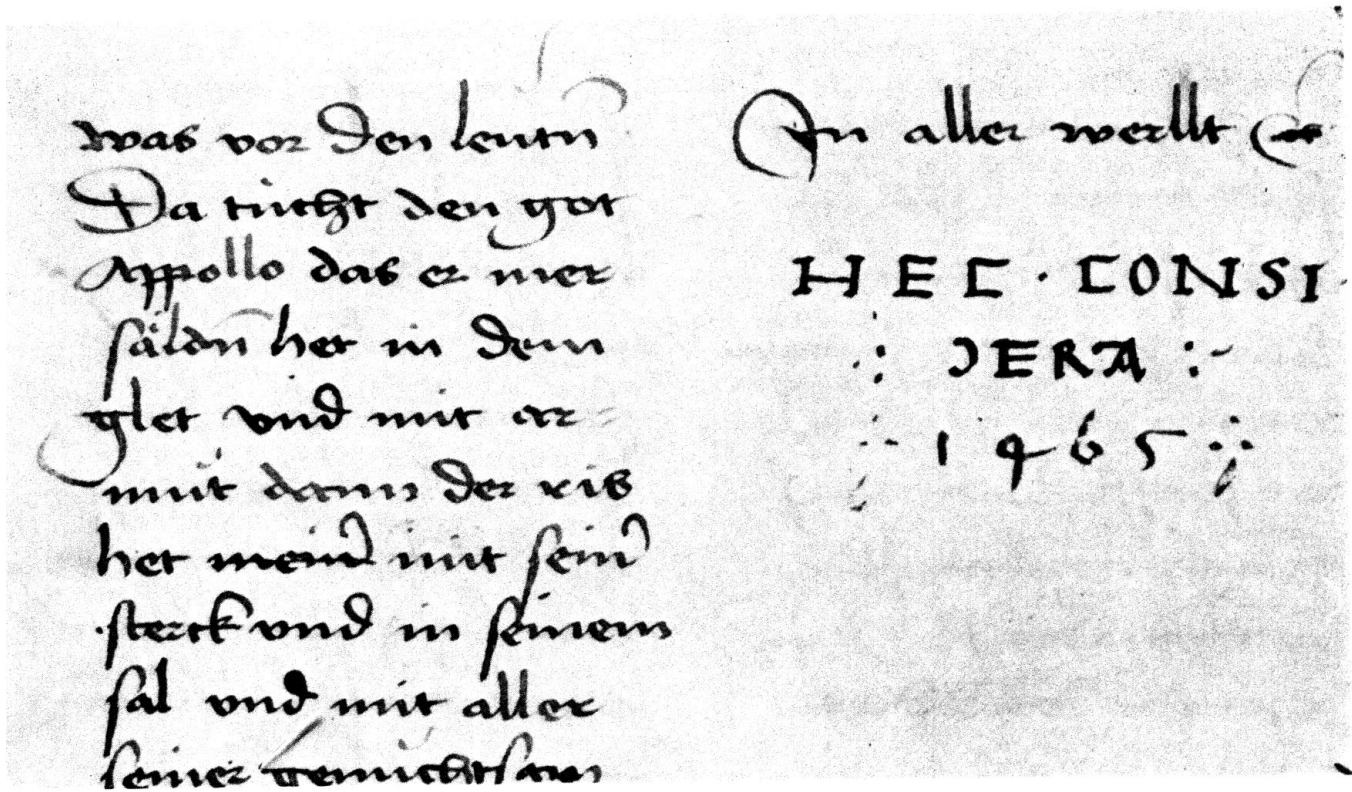 was vor den leutn̄
Da tücht den got
Appollo das er mer
säldn̄ het in dem
glet vnd mit ar-
müt dann der ris
het mit sein̄
sterck vnd in seinem
sal vnd mit aller
seiner genüchtsam
In aller werllt
HEC · CONSI
DERA
1465